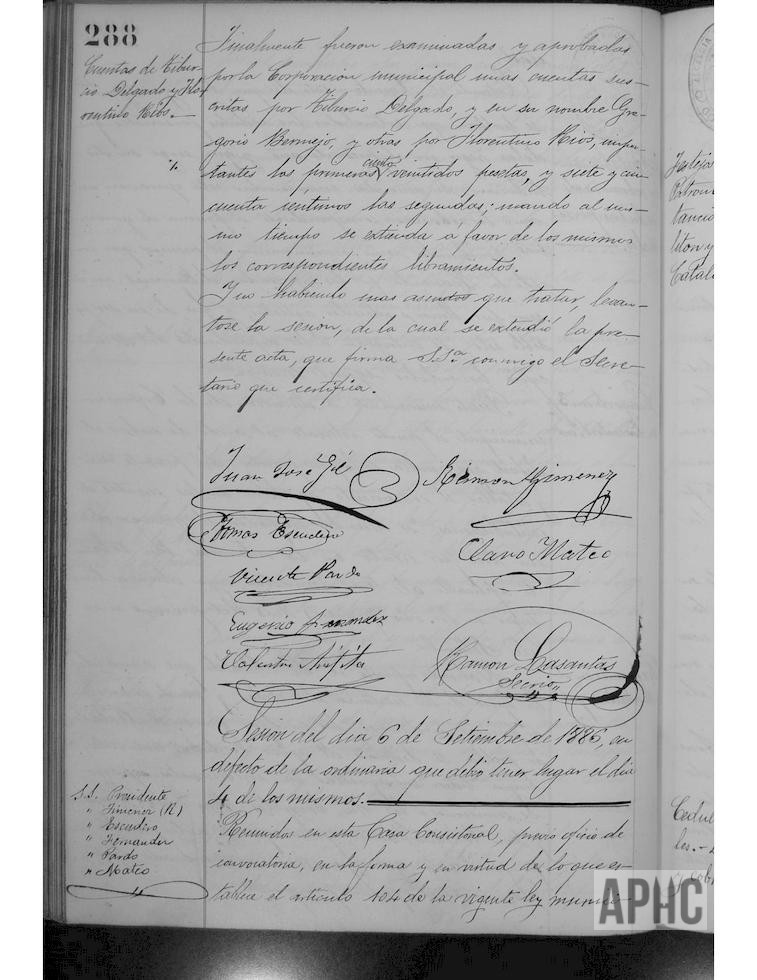 288
Cuentas de Tibur-
cio Delgado y Flo-
rentino Rios.-
Finalmente fueron examinadas y aprobadas
por la Corporacion municipal unas cuentas sus-
critas por Tiburcio Delgado, y en su nombre Gre-
gorio Bermejo, y otras por Florentino Rios, impor-
tantes las primeras ciento veintidos pesetas, y siete y cin-
cuenta céntimos las segundas; mando al mis-
mo tiempo se extienda á favor de los mismos
los correspondientes libramientos.
Y no habiendo mas asuntos que tratar, levan-
tose la sesion, de la cual se extendió la pre-
sente acta, que firma S.Sª conmigo el Secre-
tario que certifica.
Juan José Gil
Ramon Gimenez
Tomas Escudero
Claro Mateo
Vicente Pardo
Eugenio Fernandez
Ramon Lasantas
Secrio
Sesion del dia 6 de Setiembre de 1886, en
defecto de la ordinaria que debió tener lugar el dia
4 de los mismos.
S.S. Presidente
" Jimenez (R)
" Escudero
" Fernandez
" Pardo
" Mateo
Reunidos en esta Casa Consistorial, previo oficio de
convocatoria, en la forma y en virtud de lo que es-
tablece el artículo 104 de la vigente ley munici-
Festejos
Catal
Cedul
APHC